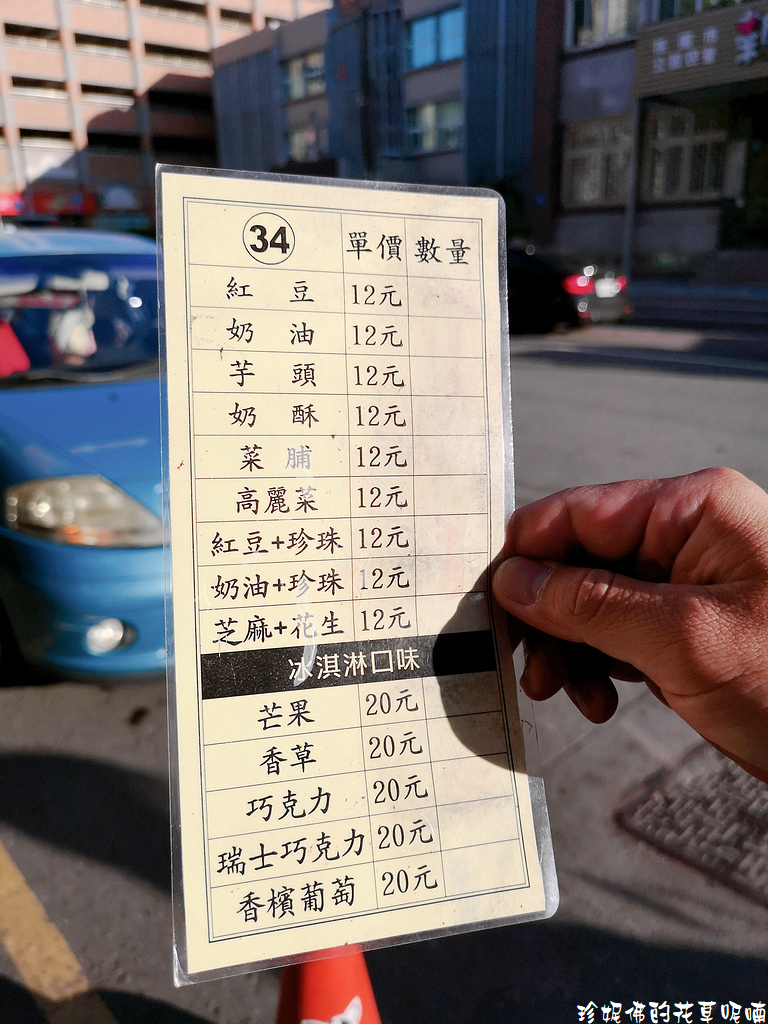 34 單價 數量
紅豆 12元
奶油 12元
芋頭 12元
奶酥 12元
菜脯 12元
高麗菜 12元
紅豆+珍珠 12元
奶油+珍珠 12元
芝麻+花生 12元
冰淇淋口味
芒果 20元
香草 20元
巧克力 20元
瑞士巧克力 20元
香檳葡萄 20元
珍妮佛的花草呢喃